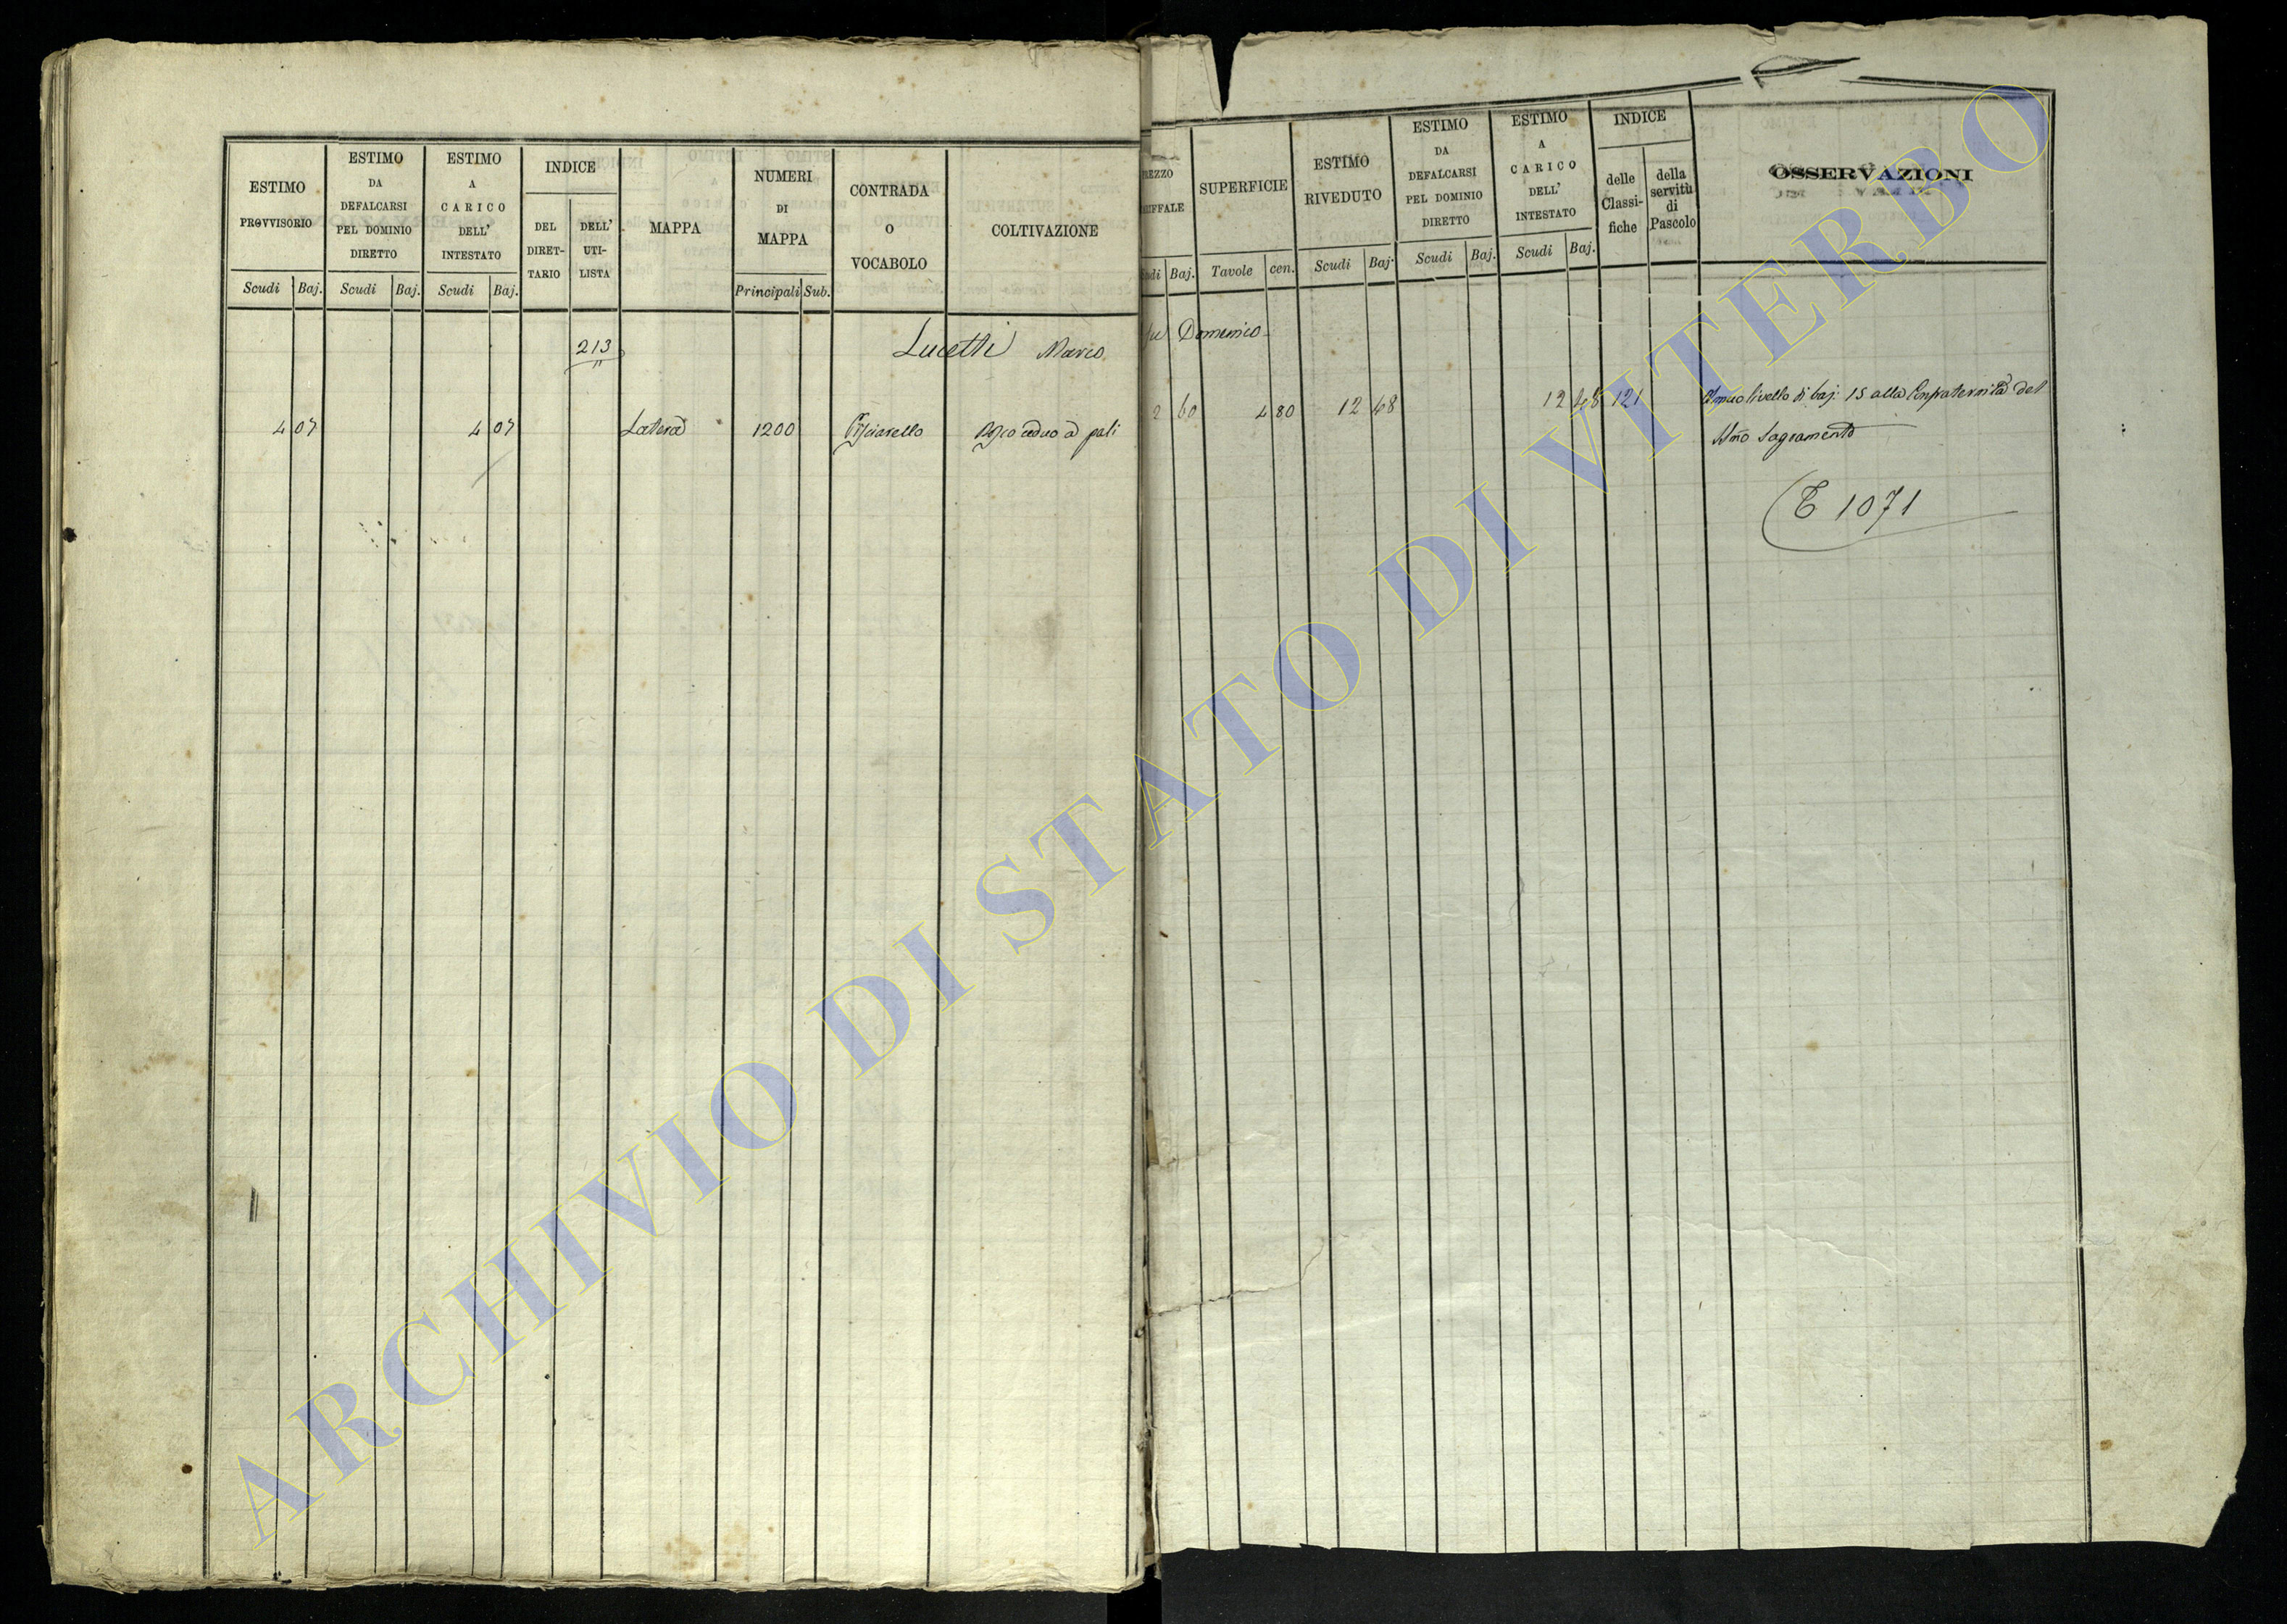 ESTIMO PROVVISORIO
Scudi Baj.
ESTIMO DA DEFALCARSI PEL DOMINIO DIRETTO
Scudi Baj.
ESTIMO A CARICO DELL' INTESTATO
Scudi Baj.
INDICE
DEL DIRET-TARIO
DELL' UTI-LISTA
MAPPA
NUMERI DI MAPPA
Principali Sub.
CONTRADA O VOCABOLO
COLTIVAZIONE
SUPERFICIE
Baj. Tavole cen.
ESTIMO RIVEDUTO
Scudi Baj.
ESTIMO DA DEFALCARSI PEL DOMINIO DIRETTO
Scudi Baj.
ESTIMO A CARICO DELL' INTESTATO
Scudi Baj.
INDICE
delle Classi-fiche
della servitù di Pascolo
OSSERVAZIONI
213 Lucetti Marco fu Domenico
4 07 4 07 Latera 1200 Bosco ceduo a pali
2 60 4 80 12 48 12 48 121 Annuo livello di baj: 15 alla Confraternita del
Smo Sagramento
E 1071
ARCHIVIO DI STATO DI VITERBO